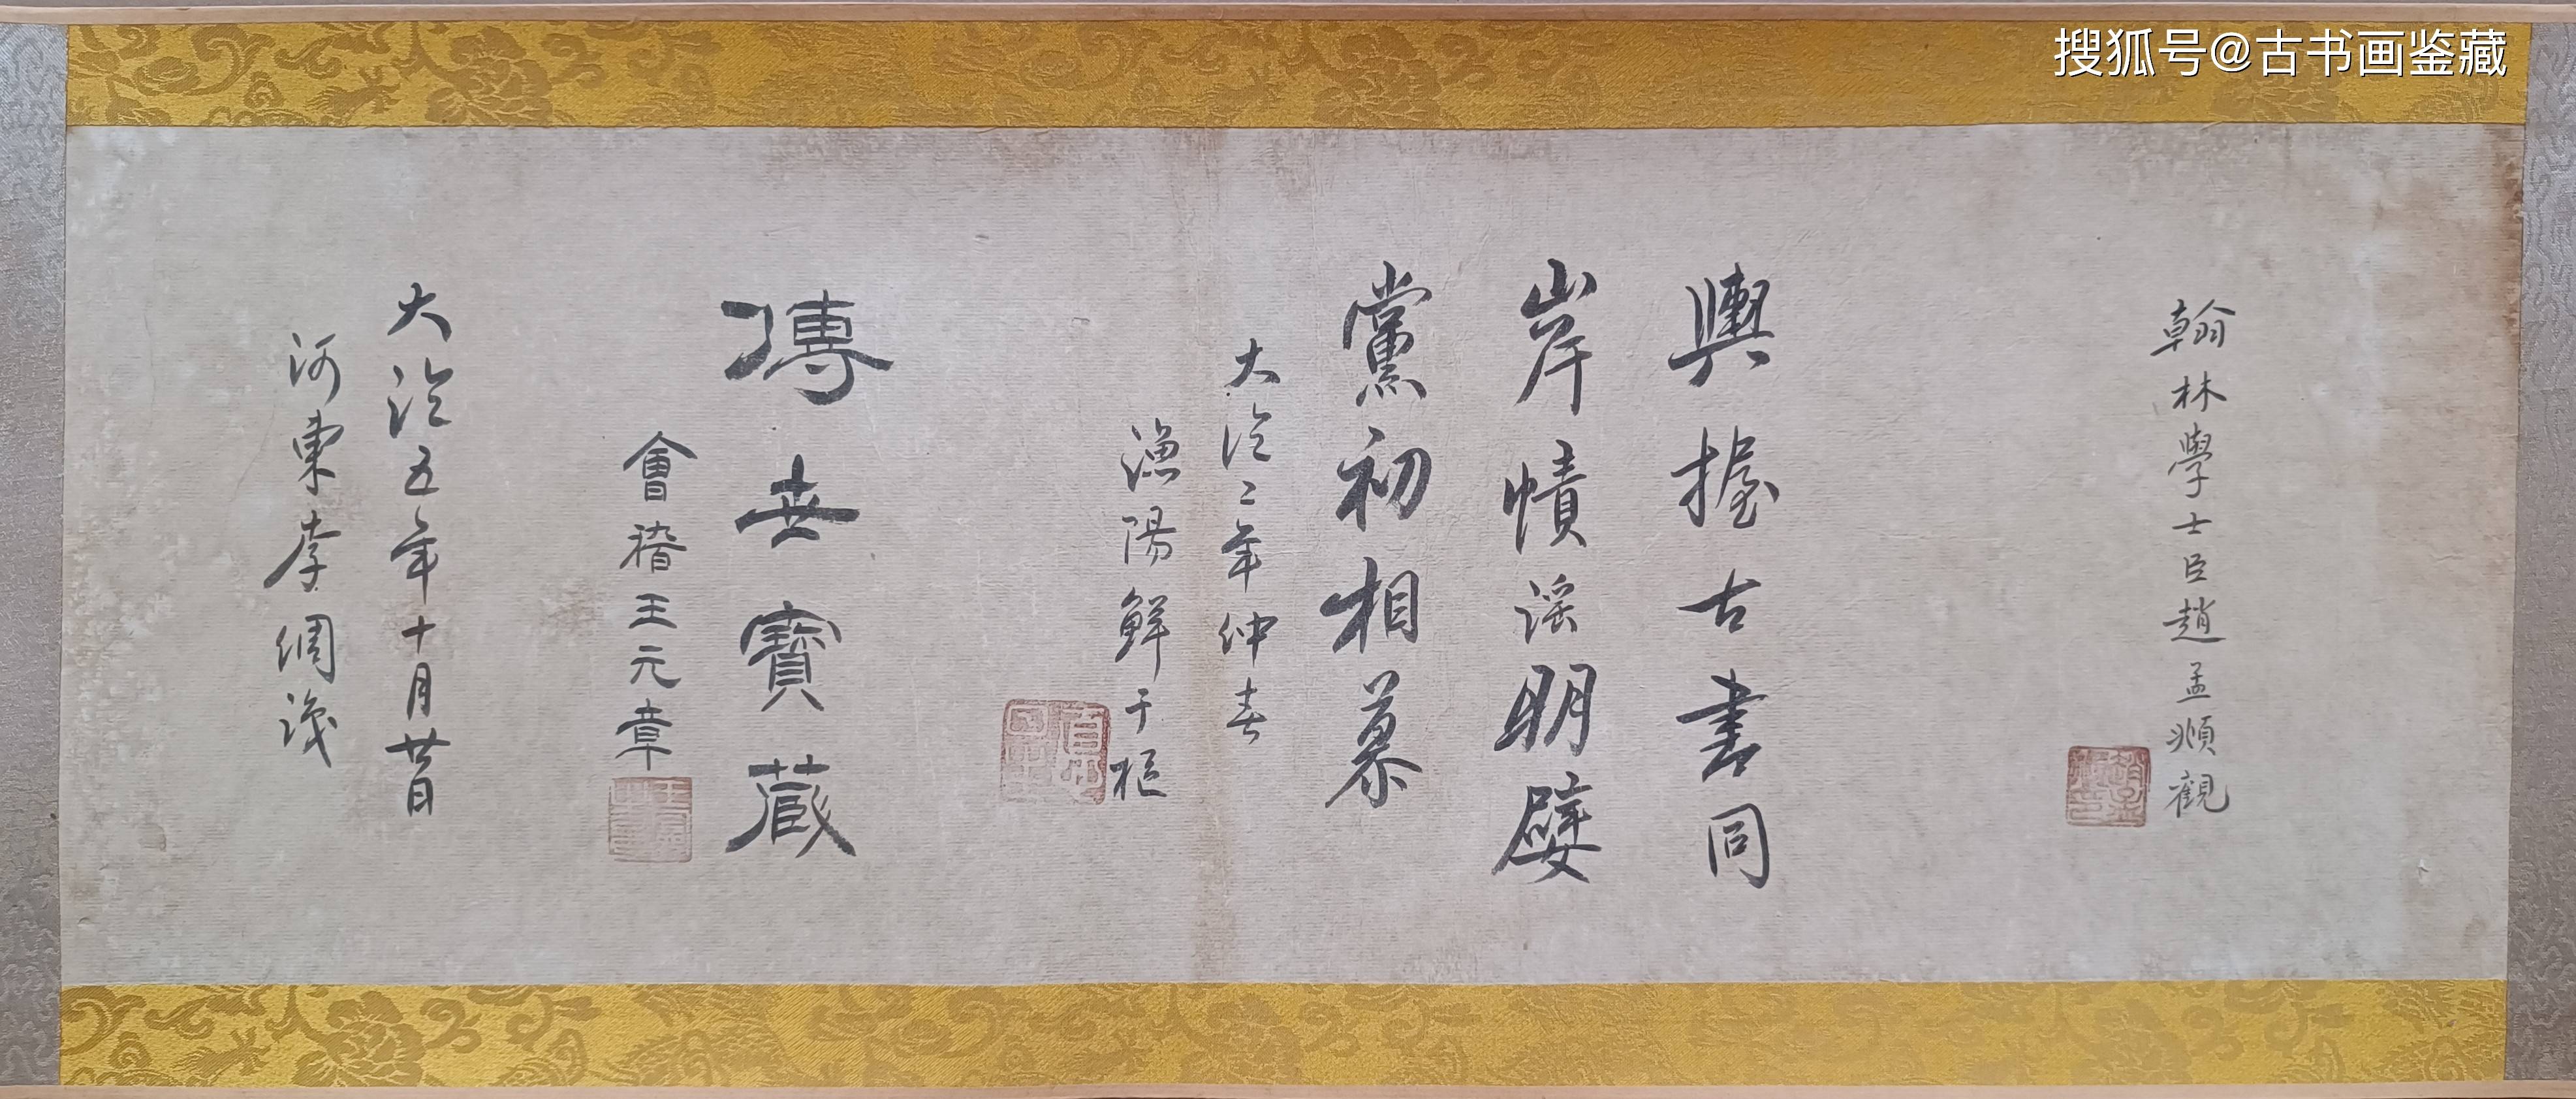 搜狐号@古书画鉴藏
翰林學士臣趙孟頫觀
輿握古書同
岸幘謠明嬖
黨初相慕
大德二年仲春
漁陽鮮于樞
傳世寶藏
會稽王元章
大德五年十月廿日
河東李倜識